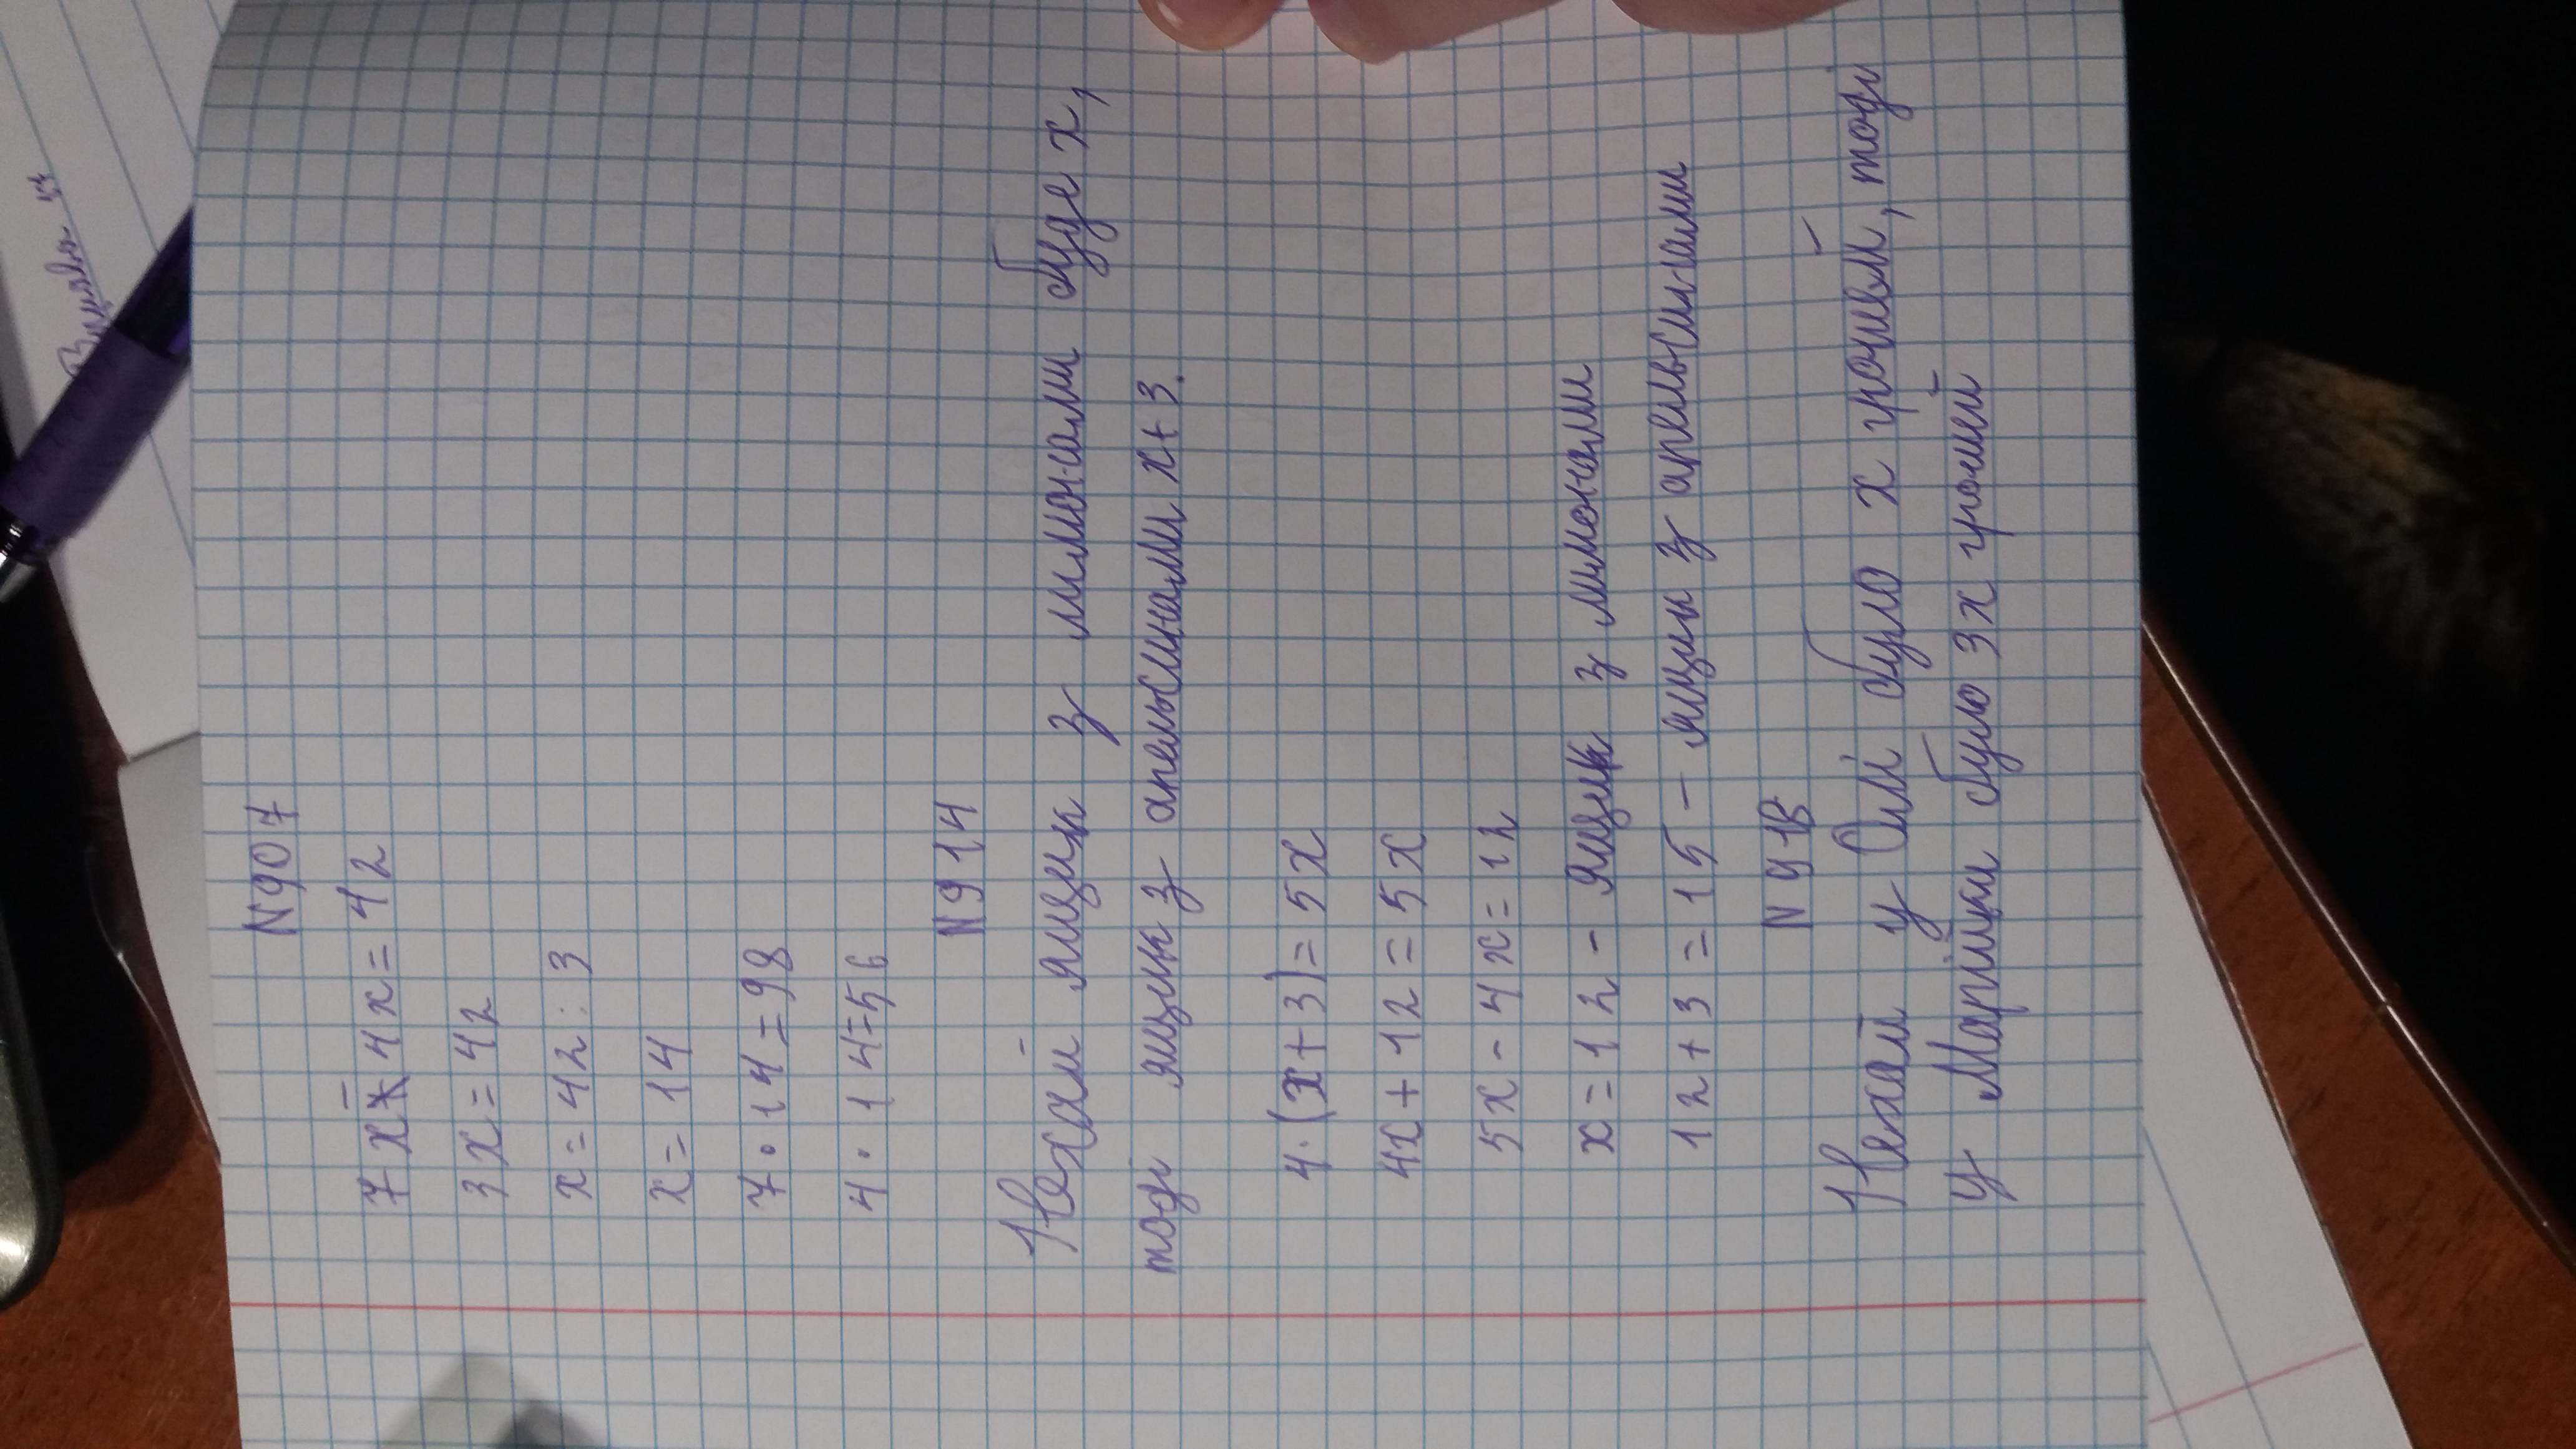 N907
7x-4x=42
3x=42
x=42:3
x=14
7·14=98
4·14=56
N914
Нехай ящик з лимонами буде x,
тоді ящик з апельсинами x+3.
4·(x+3)=5x
4x+12=5x
5x-4x=12
x=12- ящик з лимонами
12+3=15- ящик з апельсинами
Нехай у Олі було x грошей, тоді
у Марійки було 3x грошей